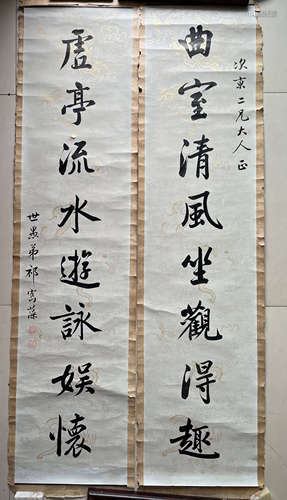 次京二兄大人正
曲室清風坐觀得趣
虛亭流水遊詠娛懷
世愚弟祁寯藻